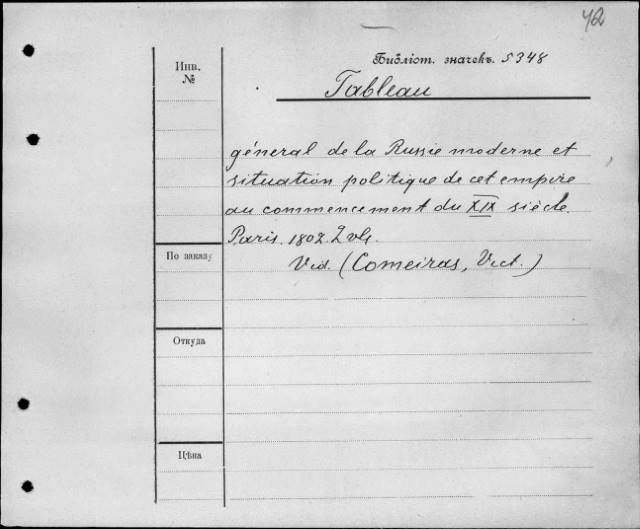 42
Библіот. значекъ. 5348
Инв.
№
Tableau
géneral de la Russie moderne et
situation politique de cet empire
au commencement du XIX siècle.
Paris. 1802. 2 vls.
Vid. (Comeiras, Vict.)
По заказу
Откуда
Цѣна